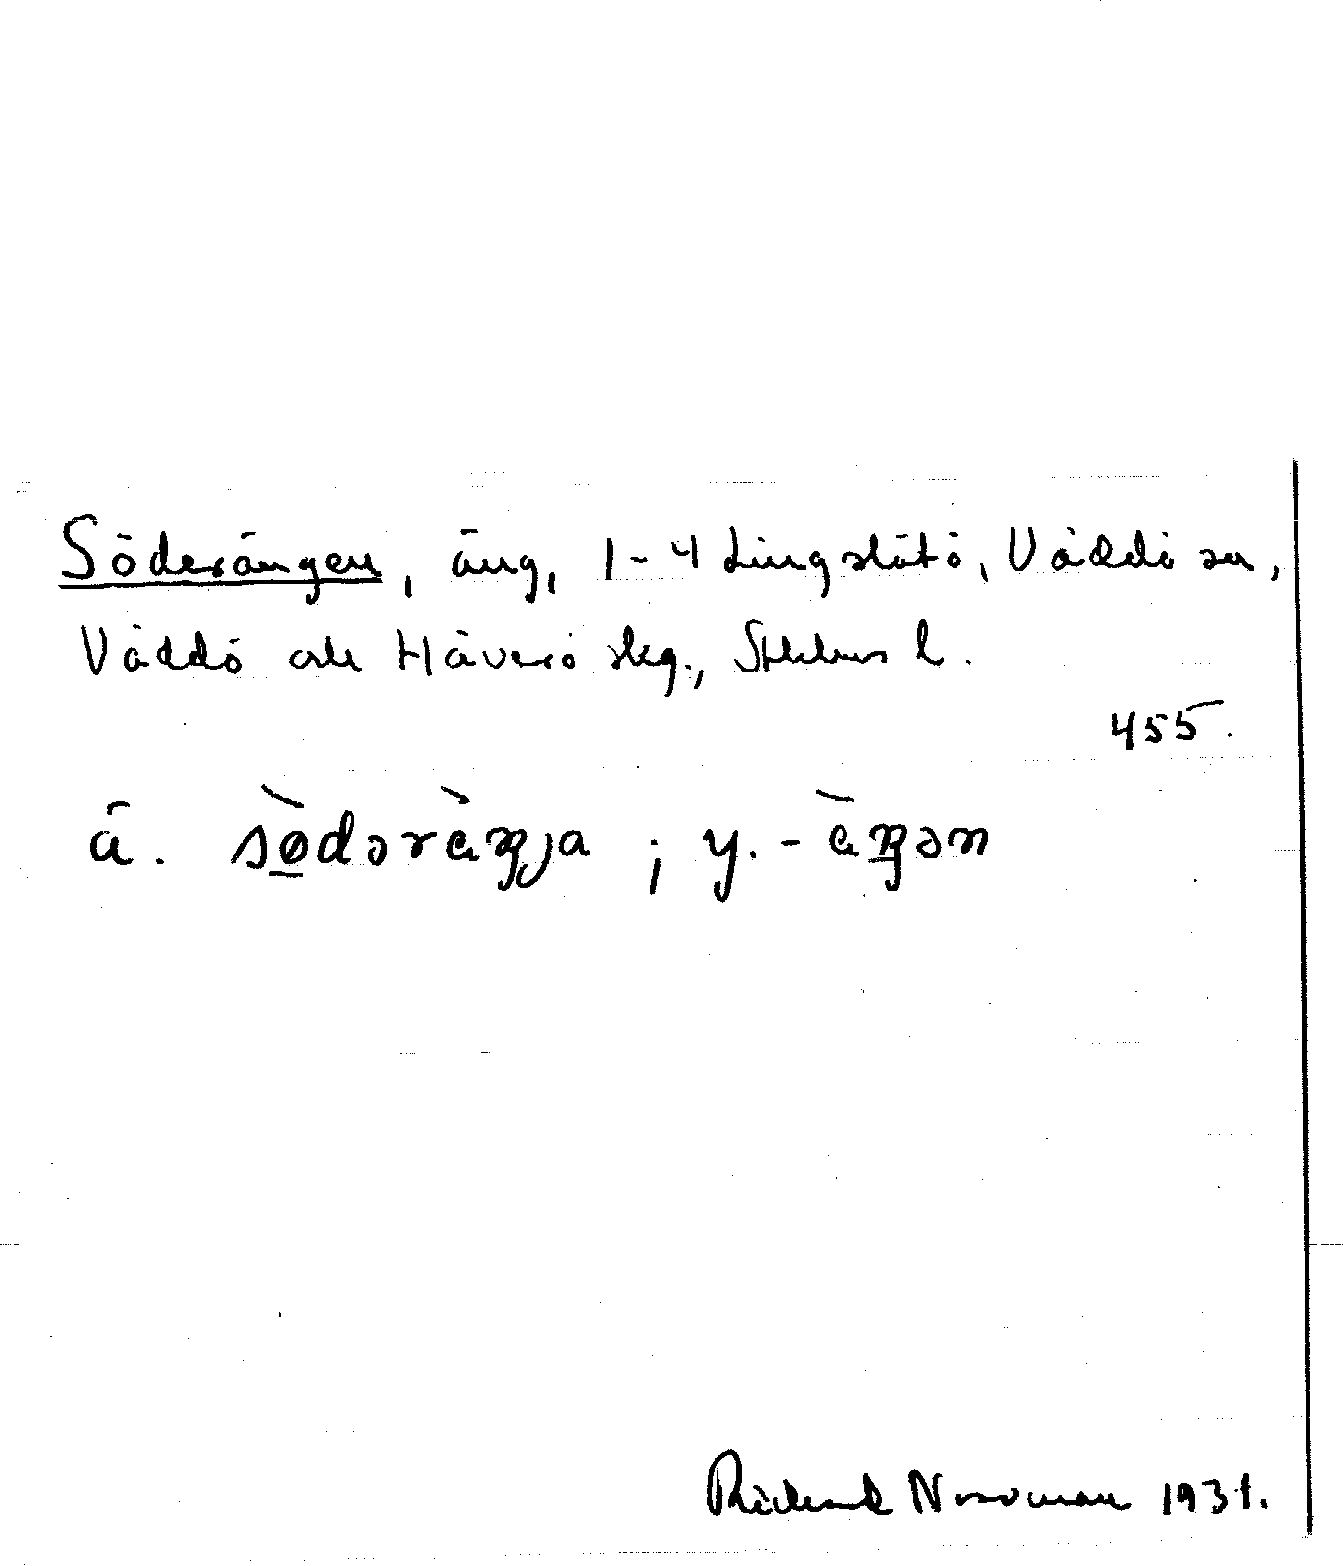 Söderängen, äng, 1-4 Tingslätö, Väddö sn,
Väddö och Häverö skg., Sthlms l.
455.
ä. sø̀dəràŋja ; y. -àŋən
Rickard Norrman 1931.